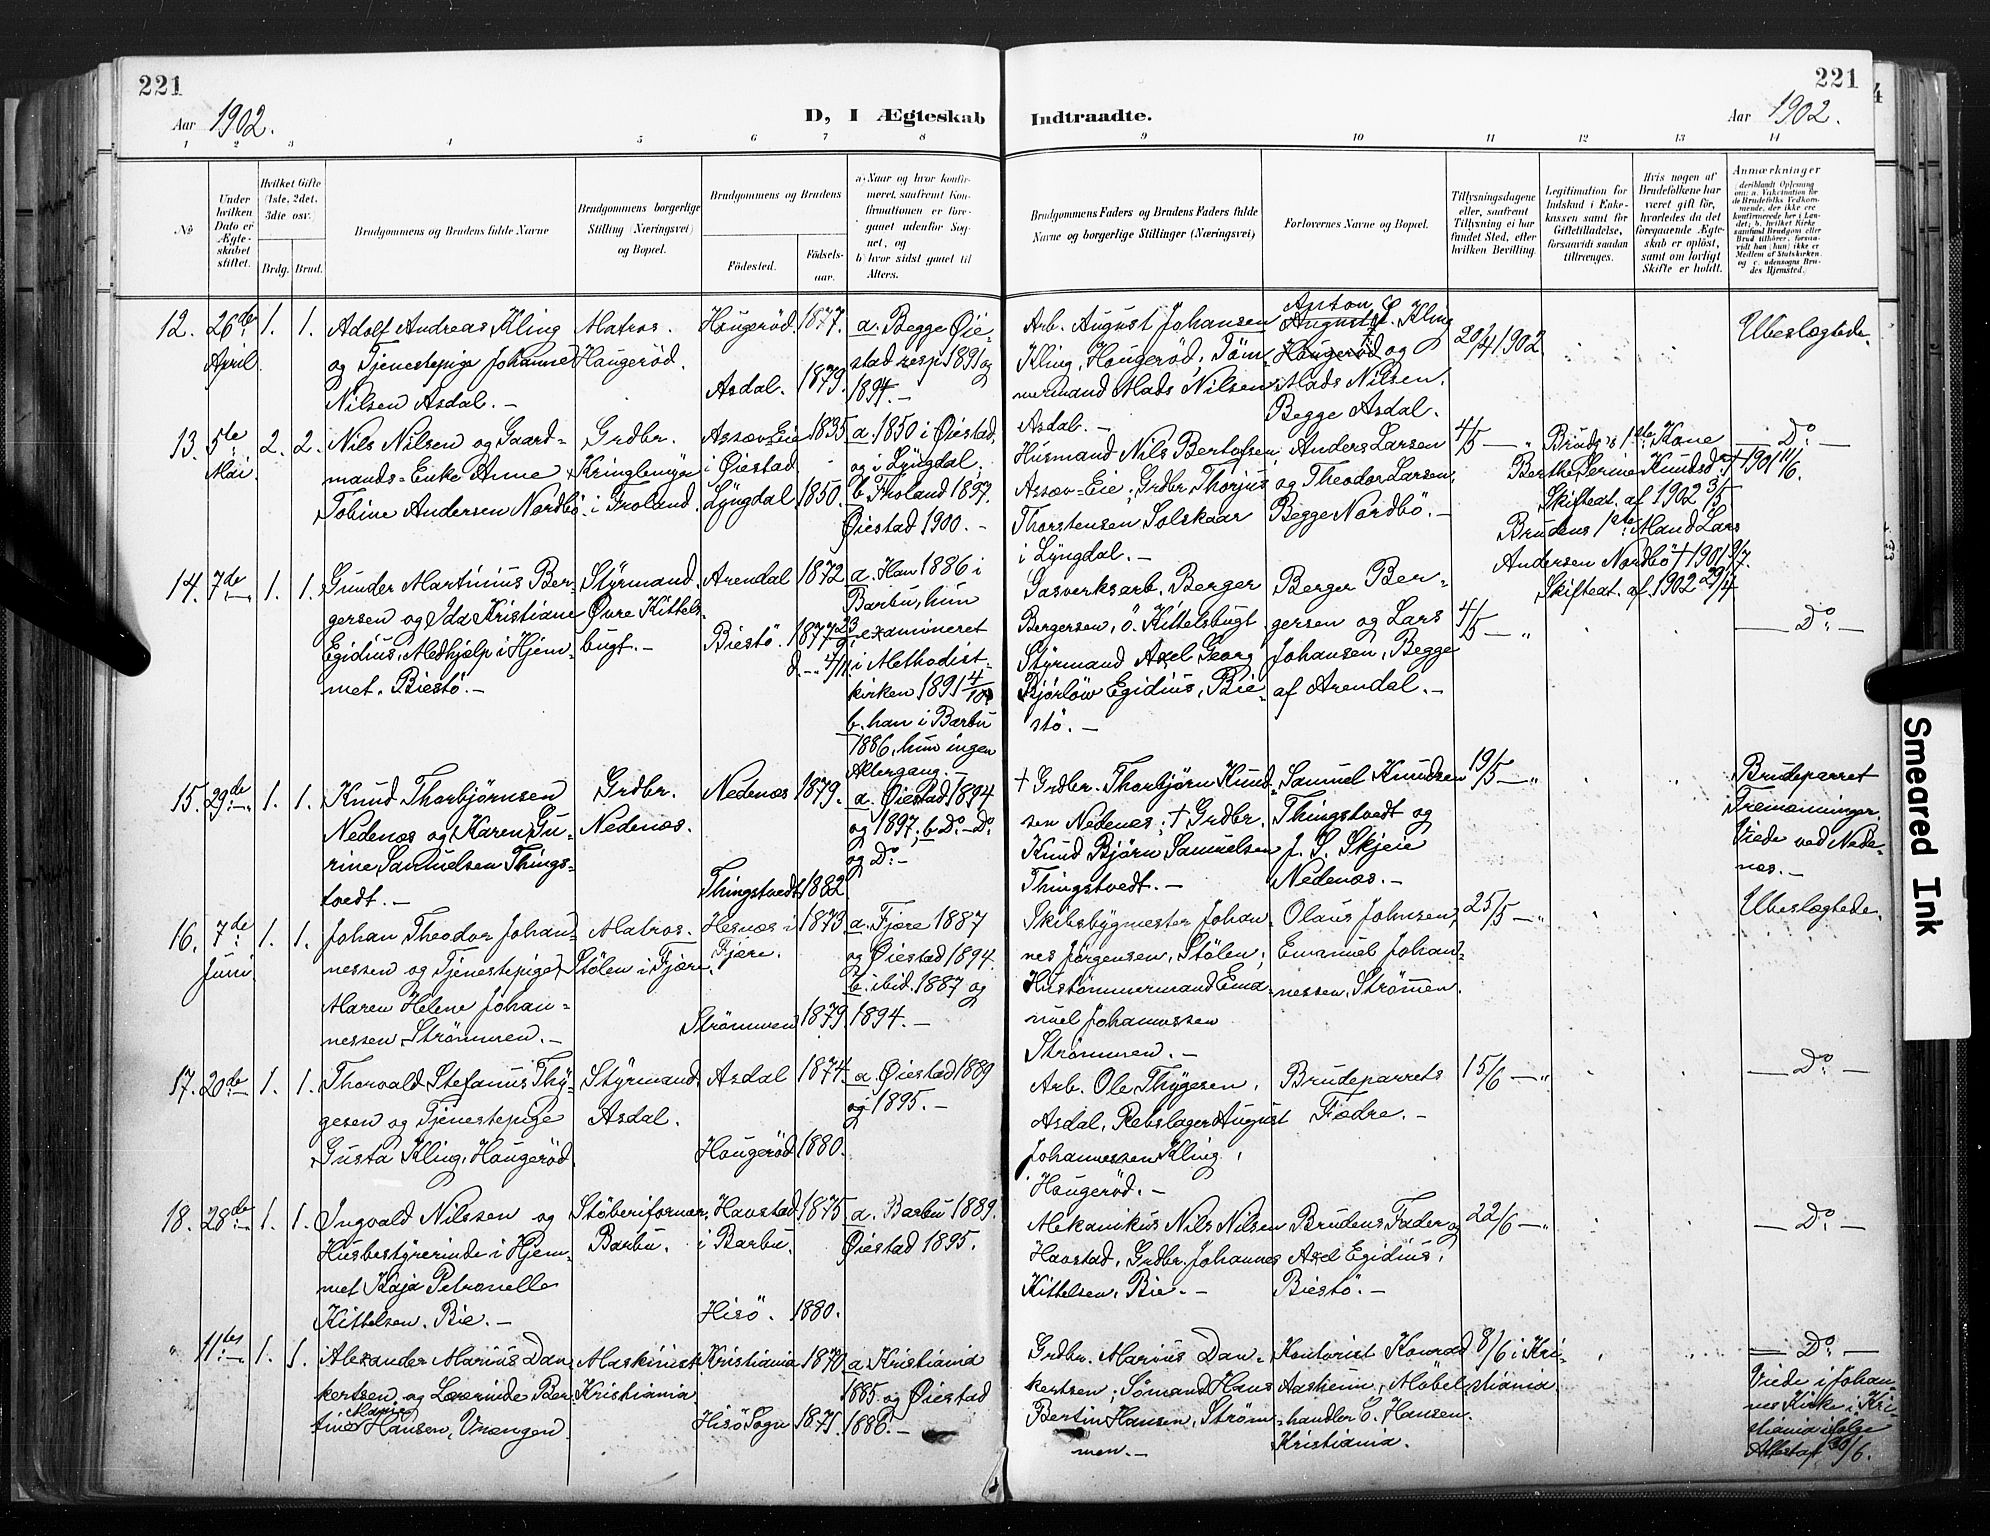 221
221
Aar 1902.
D, I Ægteskab Indtraadte.
Aar 1902.
1 2 3 4 5 6 7 8 9 10 11 12 13 14
№
Under hvilken Dato er Ægteskabet stiftet.
Hvilket Gifte (1ste, 2det, 3die osv.
Brdg. Brud.
Brudgommens og Brudens fulde Navne
Brudgommens borgerlige Stilling (Næringsvei) og Bopæl.
Brudgommens og Brudens
Fødested.
Fødselsaar.
a) Naar og hvor konfirmeret, saafremt Konfirmationen er foregaaet udenfor Sognet, og
b) hvor sidst gaaet til Alters.
Brudgommens Faders og Brudens Faders fulde Navne og borgerlige Stillinger (Næringsvei)
Forlovernes Navne og Bopæl.
Tillysningsdagene eller, saafremt Tillysning ei har fundet Sted, efter hvilken Bevilling.
Legitimation for Indskud i Enkekassen samt for Giftetilladelse, forsaavidt saadan tiltrænges.
Hvis nogen af Brudefolkene har været gift før, hvorledes da det foregaaende Ægteskab er opløst, samt om lovligt Skifte er holdt.
Anmærkninger
12. 26de April. 1. 1.
Adolf Andreas Kling
og Tjenestepige Johanne
Nilsen Asdal. –
Matros.
Haugerød.
Haugerød. 1877.
Asdal. 1879.
a. Begge Øie-
stad resp. 1891 og
1894. –
Arb. August Johansen
Kling, Haugerød; Tøm-
mermand Mads Nilsen
Asdal. –
Anton E. Kling
Haugerød og
Mads Nilsen.
Begge Asdal.
20/4 1902
Ubeslægtede.
13. 5te Mai. 2. 2.
Nils Nilsen og Gaard-
mands-Enke Anne
Tobine Andersen Nordbø.
Grdbr.
Kringlemyr
i Froland.
Assev-Eie
i Øiestad
1835
Lyngdal 1850.
a. 1850 i Øiestad.
og i Lyngdal.
b. Froland 1897.
Øiestad 1900. –
Husmand Nils Bertofsen,
Assev-Eie; Grdbr. Thorjus
Thorstensen Solskaar
i Lyngdal. –
Anders Larsen
og Theodor Larsen,
Begge Nordbø. –
4/5 – "
Brudg.s 1ste Kone
Berthe Serine Knudsdr. † 1901 11/6.
Skifteat. af 1902 3/5
Brudens 1ste Mand Lars
Andersen Nordbø † 1901 9/7.
Skifteat. af 1902 29/4
– Do. –
14. 7de 1. 1.
Gunder Martinius Ber-
gersen og Ida Kristiane
Egidius, Medhjælp i Hjem-
met. Biestø. –
Styrmand.
Øvre Kittels-
bugt. –
Arendal 1872
Biestø. 1877
a. Han 1886 i
Barbu, hun
examineret
i Methodist-
kirken 1891 4/10.
b. han i Barbu
1886, hun ingen
Altergang. –
Gasverksarb. Berger
Bergersen, ö. Kittelsbugt
Styrmand Axel Georg
Bjørløw Egidius, Bie-
stø. –
Berger Ber-
gersen og Lars
Johansen, Begge
af Arendal. –
4/5 – "
– Do. –
15. 29de 1. 1.
Knud Thorbjørnsen
Nedenæs og Karen Gu-
rine Samuelsen Things-
tvedt. –
Grdbr.
Nedenæs.
Nedenæs 1879.
Thingstvedt 1882
a. Øiestad 1894
og 1897; b. Do. – Do.
og Do. –
† Grdbr. Thorbjørn Knud-
sen Nedenæs; † Grdbr.
Knud Bjørn Samuelsen
Thingstvedt. –
Samuel Knudsen
Thingstvedt og
J. S. Skjeie
Nedenæs. –
19/5 – "
Brudeparret
Tremænninger.
Viede ved Nede-
næs. –
16. 7de Juni. 1. 1.
Johan Theodor Johan-
nessen og Tjenestepige
Maren Helene Johan-
nessen Strømmen. –
Matros.
Stølen i Fjære.
Hesnæs i
Fjære.
1873
Strømmen 1879
a. Fjære 1887
og Øiestad 1894.
b. ibid. 1887 og
1894. –
Skibsbygmester Johan-
nes Jørgensen, Stølen;
Hustømmermand Ema-
nuel Johannessen
Strømmen. –
Olaus Johnsen,
Emanuel Johan-
nessen, Strømmen.
25/5 – "
Ubeslægtede.
17. 20de 1. 1.
Thorvald Stefanus Thy-
gesen og Tjenestepige
Gusta Kling, Haugerød.
Styrmand
Asdal.
Asdal 1874
Haugerød 1880.
a. Øiestad 1889
og 1895. –
Arb. Ole Thygesen,
Asdal, Rebslager August
Johannessen Kling,
Haugerød. –
Brudeparrets
Fædre. –
15/6 – "
– Do. –
18. 28de 1. 1.
Ingvald Nilssen og
Husbestyrerinde i Hjem-
met Kaja Petronelle
Kittelsen. Bie. –
Støberiformer
Barbu.
Havstad
i Barbu.
1875
Hisø. 1880.
a. Barbu 1889.
Øiestad 1895.
Mekanikus Nils Nilsen
Havstad, Grdbr. Johannes
Kittelsen, Bie. –
Brudens Fader og
Axel Egidius,
Biestø. –
22/6 – "
– Do. –
" 11te 1. 1.
Alexander Marius Dan-
kertsen og Lærerinde Ber-
tine Marie Hansen, Vrengen.
Maskinist
Kristiania
Kristiania 1870
Hisø Sogn 1871.
a. Kristiania
1885 og Øiestad
1886. –
Grdbr. Marius Dan-
kertsen; Sømand Hans
Bertin Hansen, Strøm-
men. –
Kontorist Konrad
Aasheim, Møbel-
handler C. Hansen.
Kristiania.
8/6 i Kri-
stiania.
– Do. –
Viede i Johan-
nes Kirke i Kri-
stiania ifølge
Attest af 30/6.
Smeared Ink